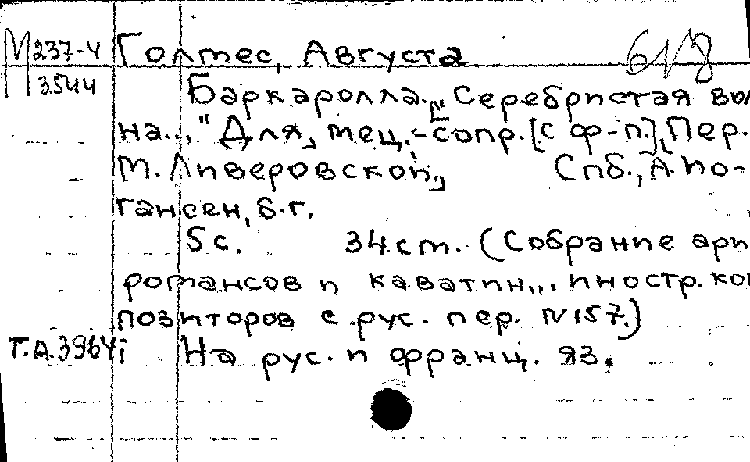 М 237-4 Голмес, Августа 618
3544
Баркаролла. "Серебристая вол
на..." Для мец.-сопр. [с ф-п]. Пер.
М. Ливеровской., Спб., А. Ио-
гансен, б.г.
5 с. 34 см. (Собрание арий
романсов и каватин... иностр. ком
позиторов с рус. пер. N 157.)
Т.А.3964i На рус. и франц. яз.